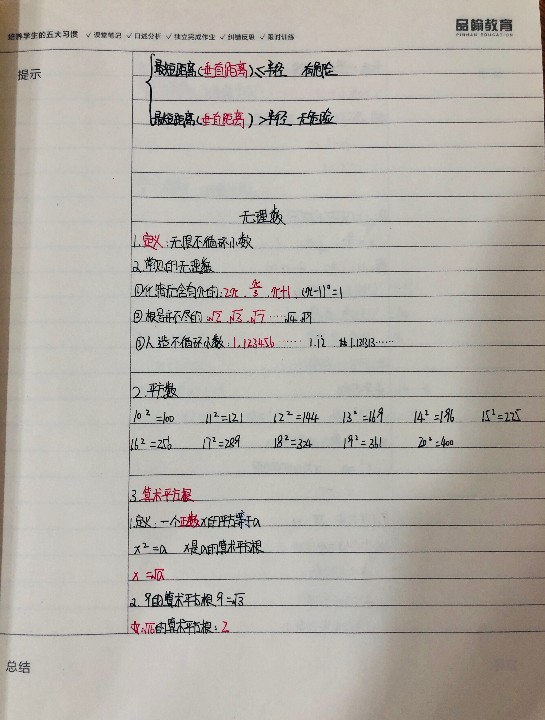 培养学生的五大习惯 ✓课堂笔记 ✓口述分析 ✓独立完成作业 ✓纠错反思 ✓限时训练
品翰教育
PINHAN EDUCATION
提示
最短距离(垂直距离)<半径 有危险
最短距离(垂直距离)>半径 无危险
无理数
1.定义:无限不循环小数
2.常见的无理数
①化简后含有π的:2π、π/3、π+1、(π-1)⁰=1
②根号开不尽的 √2、√3、√7……√4 √9
③人造不循环小数:1.123456…… 1.12 1.121313……
2.平方数
10²=100 11²=121 12²=144 13²=169 14²=196 15²=225
16²=256 17²=289 18²=324 19²=361 20²=400
3.算术平方根
1.定义:一个正数x的平方等于a
x²=a x是a的算术平方根
x=√a
2.9的算术平方根9=√3
√16的算术平方根:2
总结